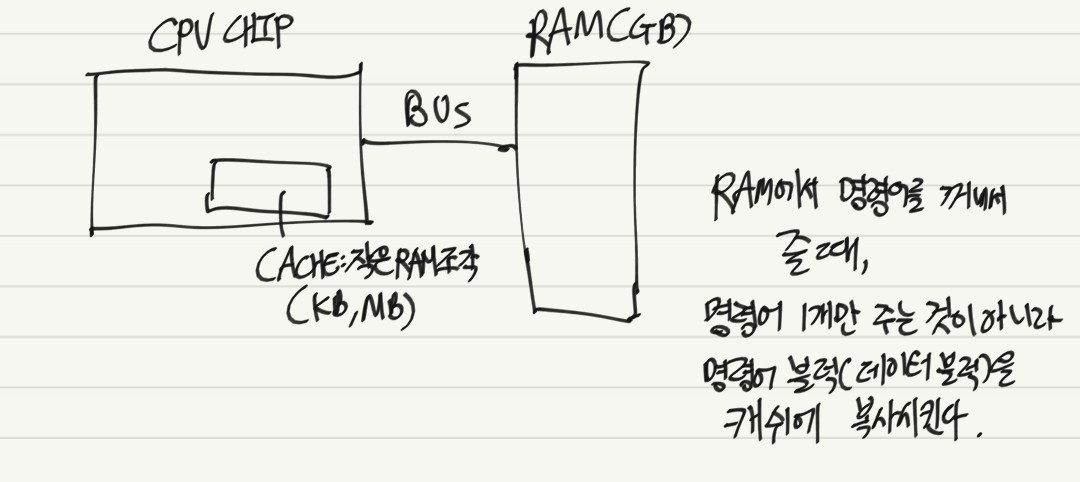 CPU CHIP
RAM(GB)
BUS
CACHE: 작은 RAM조각
(KB, MB)
RAM에서 명령어를 꺼내서
줄 때,
명령어 1개만 주는 것이 아니라
명령어 블럭(데이터 블럭)을
캐쉬에 복사시킨다.